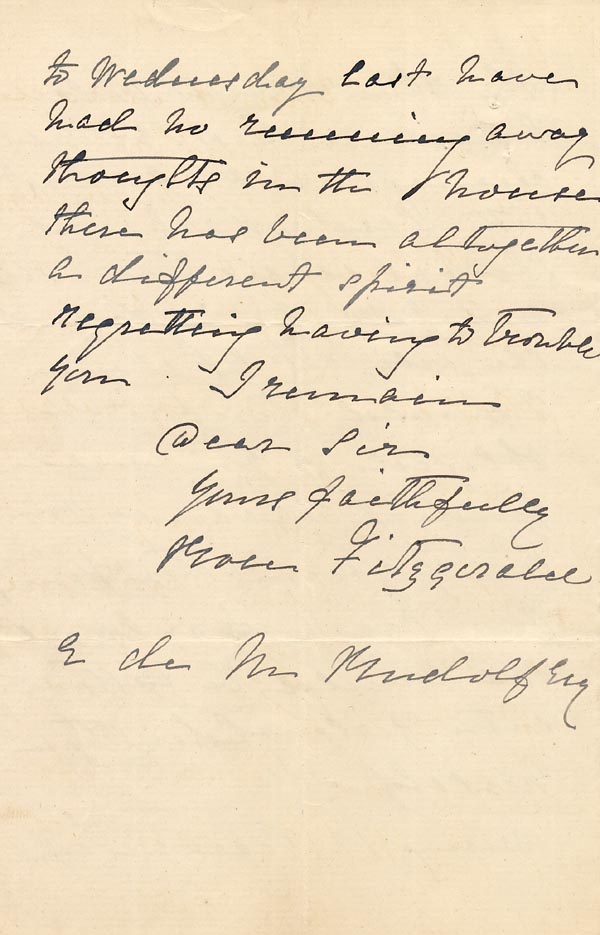 to Wednesday last have
had no running away
thoughts in the house
there has been altogether
a different spirit
regretting having to trouble
you I remain
Dear Sir
Yours faithfully
Fitzgerald
E de M Rudolf Esq